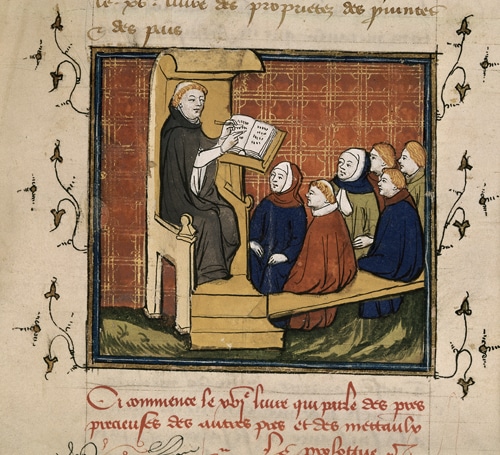 le xvᵉ liure des proprietez des puinces
⁊ des pais
Ci commence le xvjᵉ liure qui parle des pres
precieuses des autres pres et des mettaulx
Le prologue